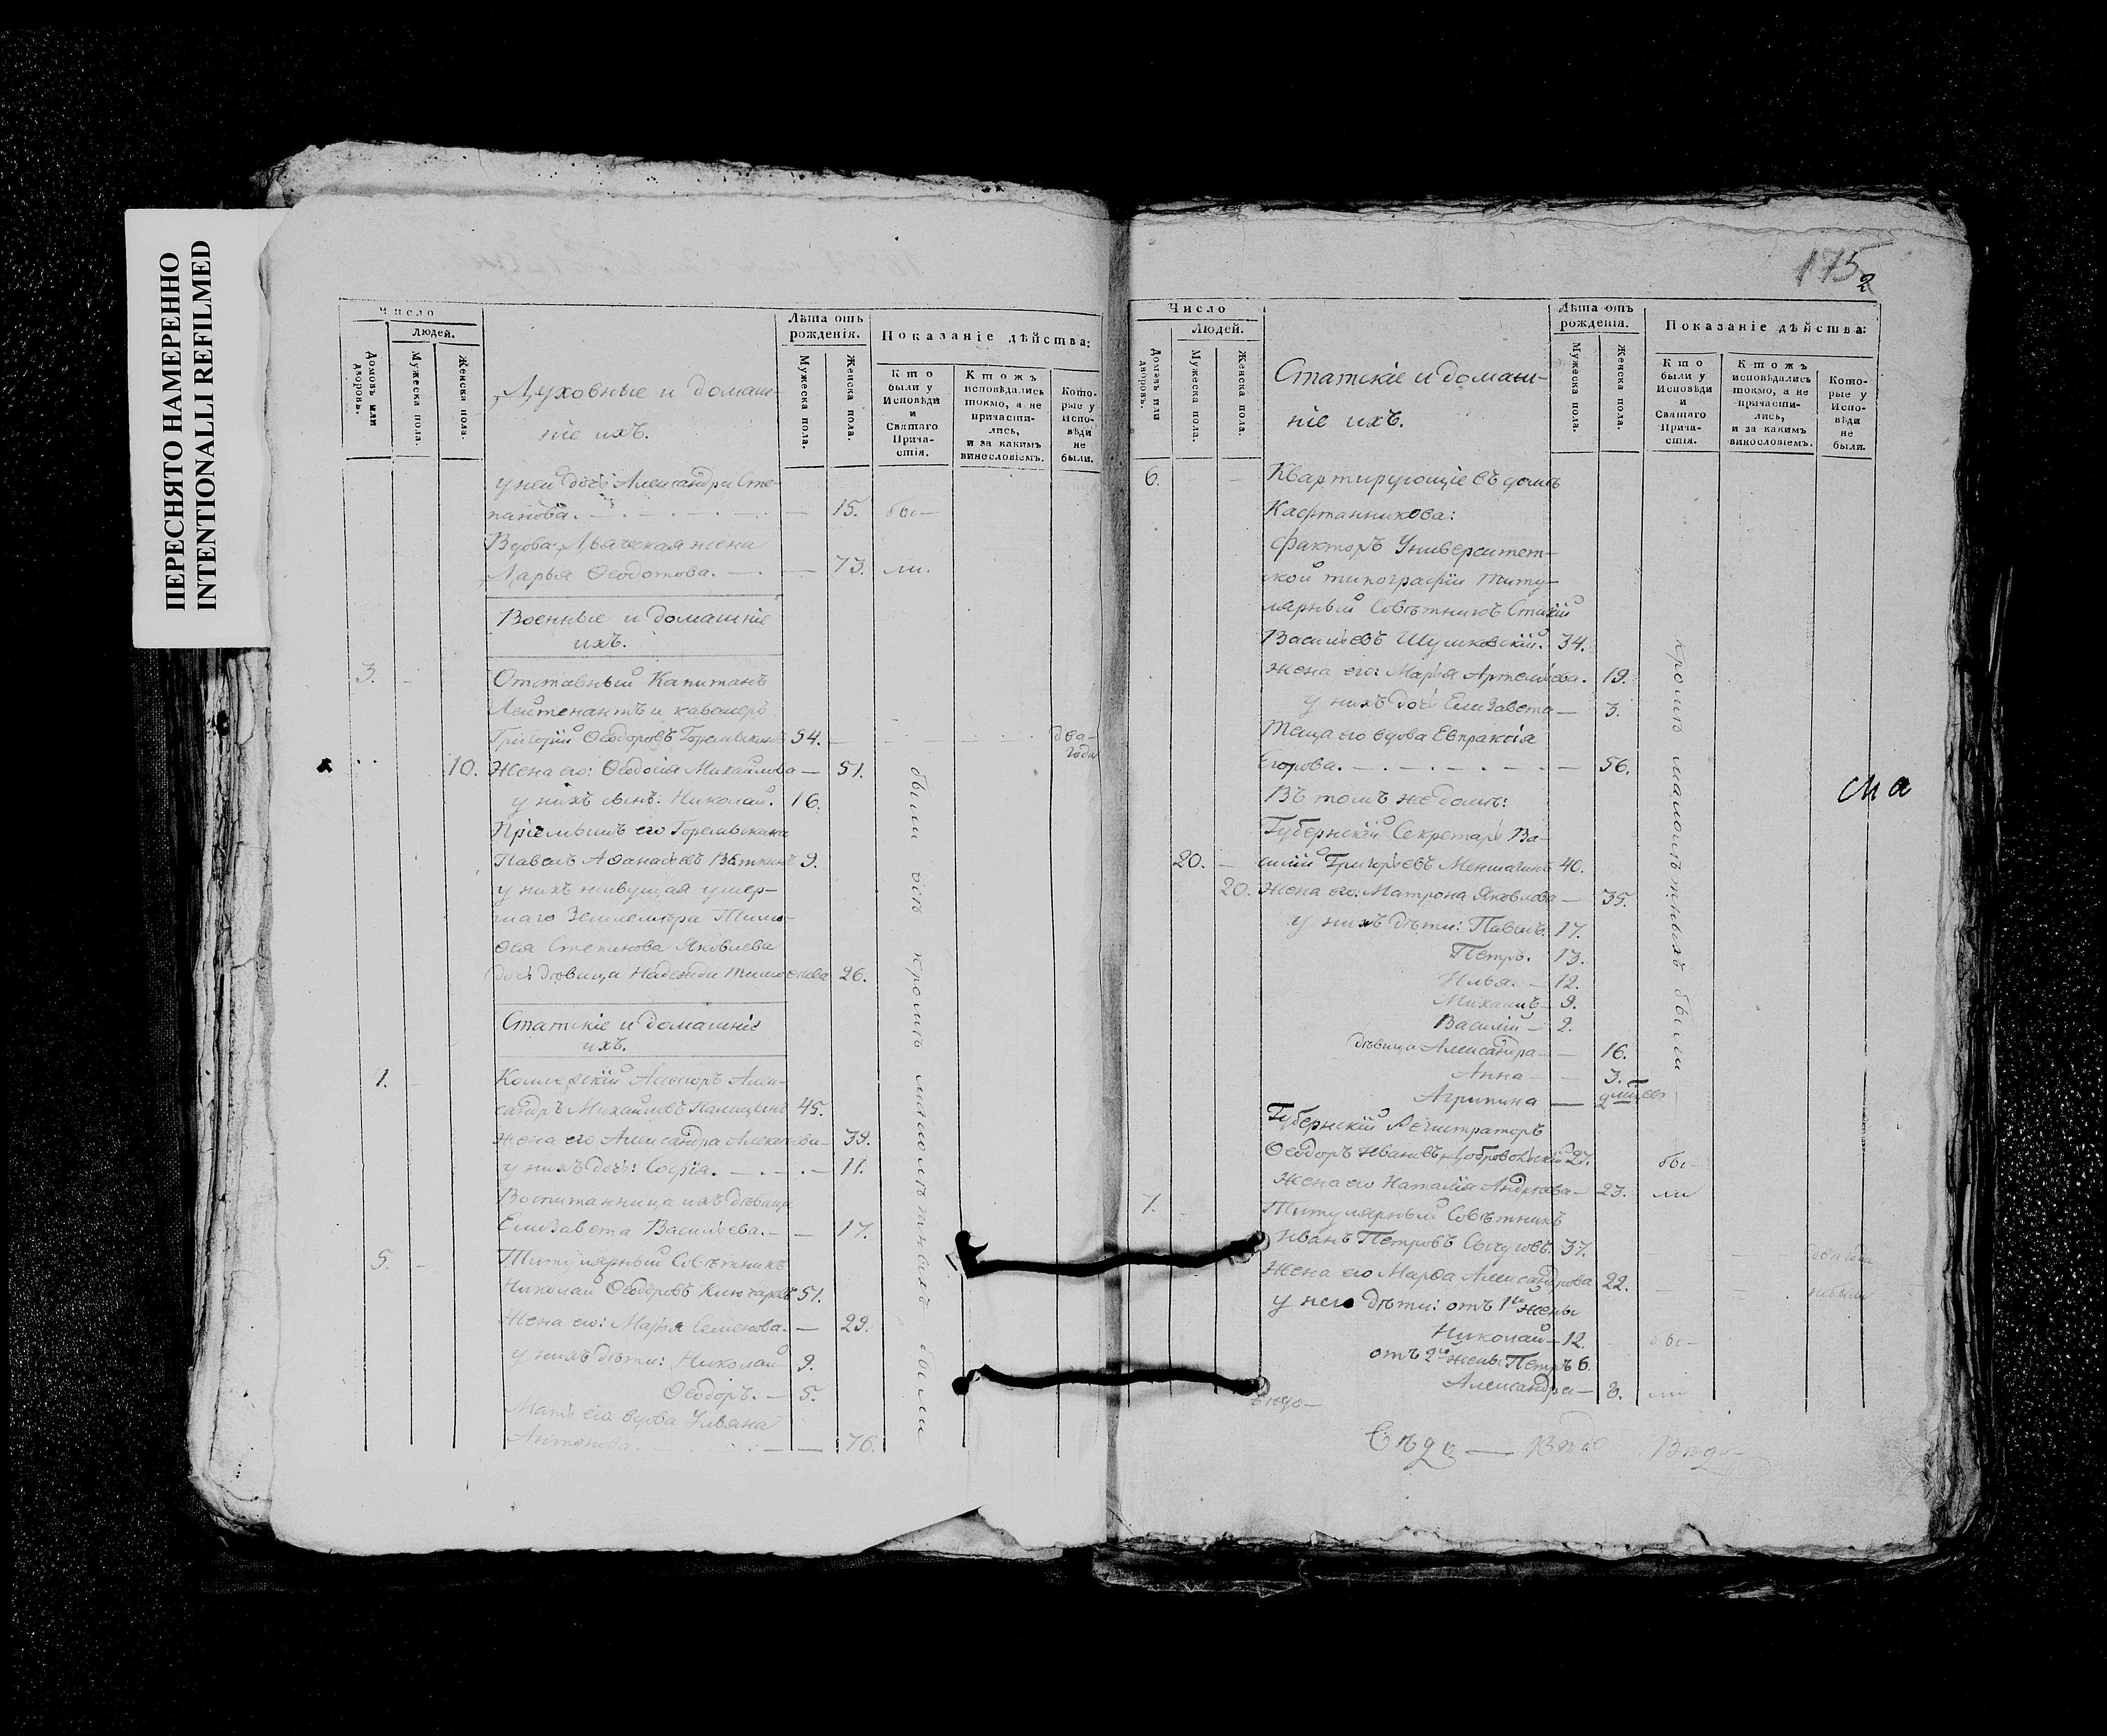 ПЕРЕСНЯТО НАМЕРЕННО
INTENTIONALLI REFILMED
Число
Людей.
Домовъ или дворовъ.
Мужеска пола.
Женска пола.
Духовные и домаш-
ніе ихъ.
Лѣта отъ рожденія.
Мужеска пола.
Женска пола.
Показаніе дѣйства:
Кто были у Исповѣди и Святаго Прича-стія.
Ктожъ исповѣдались токмо, а не причасти-лись, и за какимъ винословіемъ.
Кото-рые у Испо-вѣди не были.
у ней дочь Александра Сте-
панова. — 15. бы-
Вдова Дьяческая жена
Дарья Ѳеодотова. — 73. ли.
Военные и домашніе
ихъ.
3. Отставный Капитанъ
Лейтенантъ и кавалеръ
Григорій Ѳеодоровъ 54. два-
года
10. Жена его: Ѳеодосія Михайлова — 51.
у нихъ сынъ: Николай. 16.
Пріемышъ его
Павелъ Аѳанасьевъ 9.
у нихъ живущая умер-
шаго Землемѣра Тимо-
ѳея Степанова Яковлева
дочь дѣвица Надежда Тимоѳеева 26.
были всѣ кромѣ малолѣтныхъ были
Статскіе и домашніе
ихъ.
4. Коллежскій Ассесоръ Алек-
сандръ Михайловъ Палицынъ 45.
жена его Александра Алексѣева — 39.
у нихъ дочь: Софія. — 11.
Воспитанница ихъ дѣвица
Елизавета Васильева. — 17.
5. Титулярный Совѣтникъ
Николай Ѳеодоровъ Ключаревъ 51.
Жена его: Марья Семенова. — 29.
у нихъ дѣти: Николай 9.
Ѳеодоръ. — 5.
Мать его вдова Ульяна
Антонова. — 76.
175
2
Число
Людей.
Домовъ или дворовъ.
Мужеска пола.
Женска пола.
Статскіе и домаш-
ніе ихъ.
Лѣта отъ рожденія.
Мужеска пола.
Женска пола.
Показаніе дѣйства:
Кто были у Исповѣди и Святаго Прича-стія.
Ктожъ исповѣдались токмо, а не причасти-лись, и за какимъ винословіемъ.
Кото-рые у Испо-вѣди не были.
6. Квартирующіе въ домѣ
Кафтанникова:
факторъ Университет-
ской типографіи Титу-
лярный Совѣтникъ
Васильевъ 34.
жена его: Марья Артемьева. 19.
у нихъ дочь Елизавета — 3.
Теща его вдова Евпраксія
Егорова. — 56.
Въ томъ же домѣ:
Губернскій Секретарь Ва-
20. силій Григорьевъ Меншагинъ 40.
20. Жена его: Матрона Яковлева — 35.
у нихъ дѣти: Павелъ 17.
Петръ. 13.
Илья. — 12.
Михаилъ — 9.
Василій — 2.
дѣвица Александра — 16.
Анна — 3.
Агрипина —
кромѣ малолѣтныхъ были
Губернскій Регистраторъ
Ѳеодоръ Ивановъ Добровольскій 27. бы-
Жена его Наталія Андреева — 23. ли
7. Титулярный Совѣтникъ
Иванъ Петровъ Сычуговъ. 37. два года
Жена его Марѳа Александрова 22. небыли
у него дѣти: отъ 1й жены
Николай — 12. бы-
отъ 2й жены Петръ 6.
Александра — 8. ли